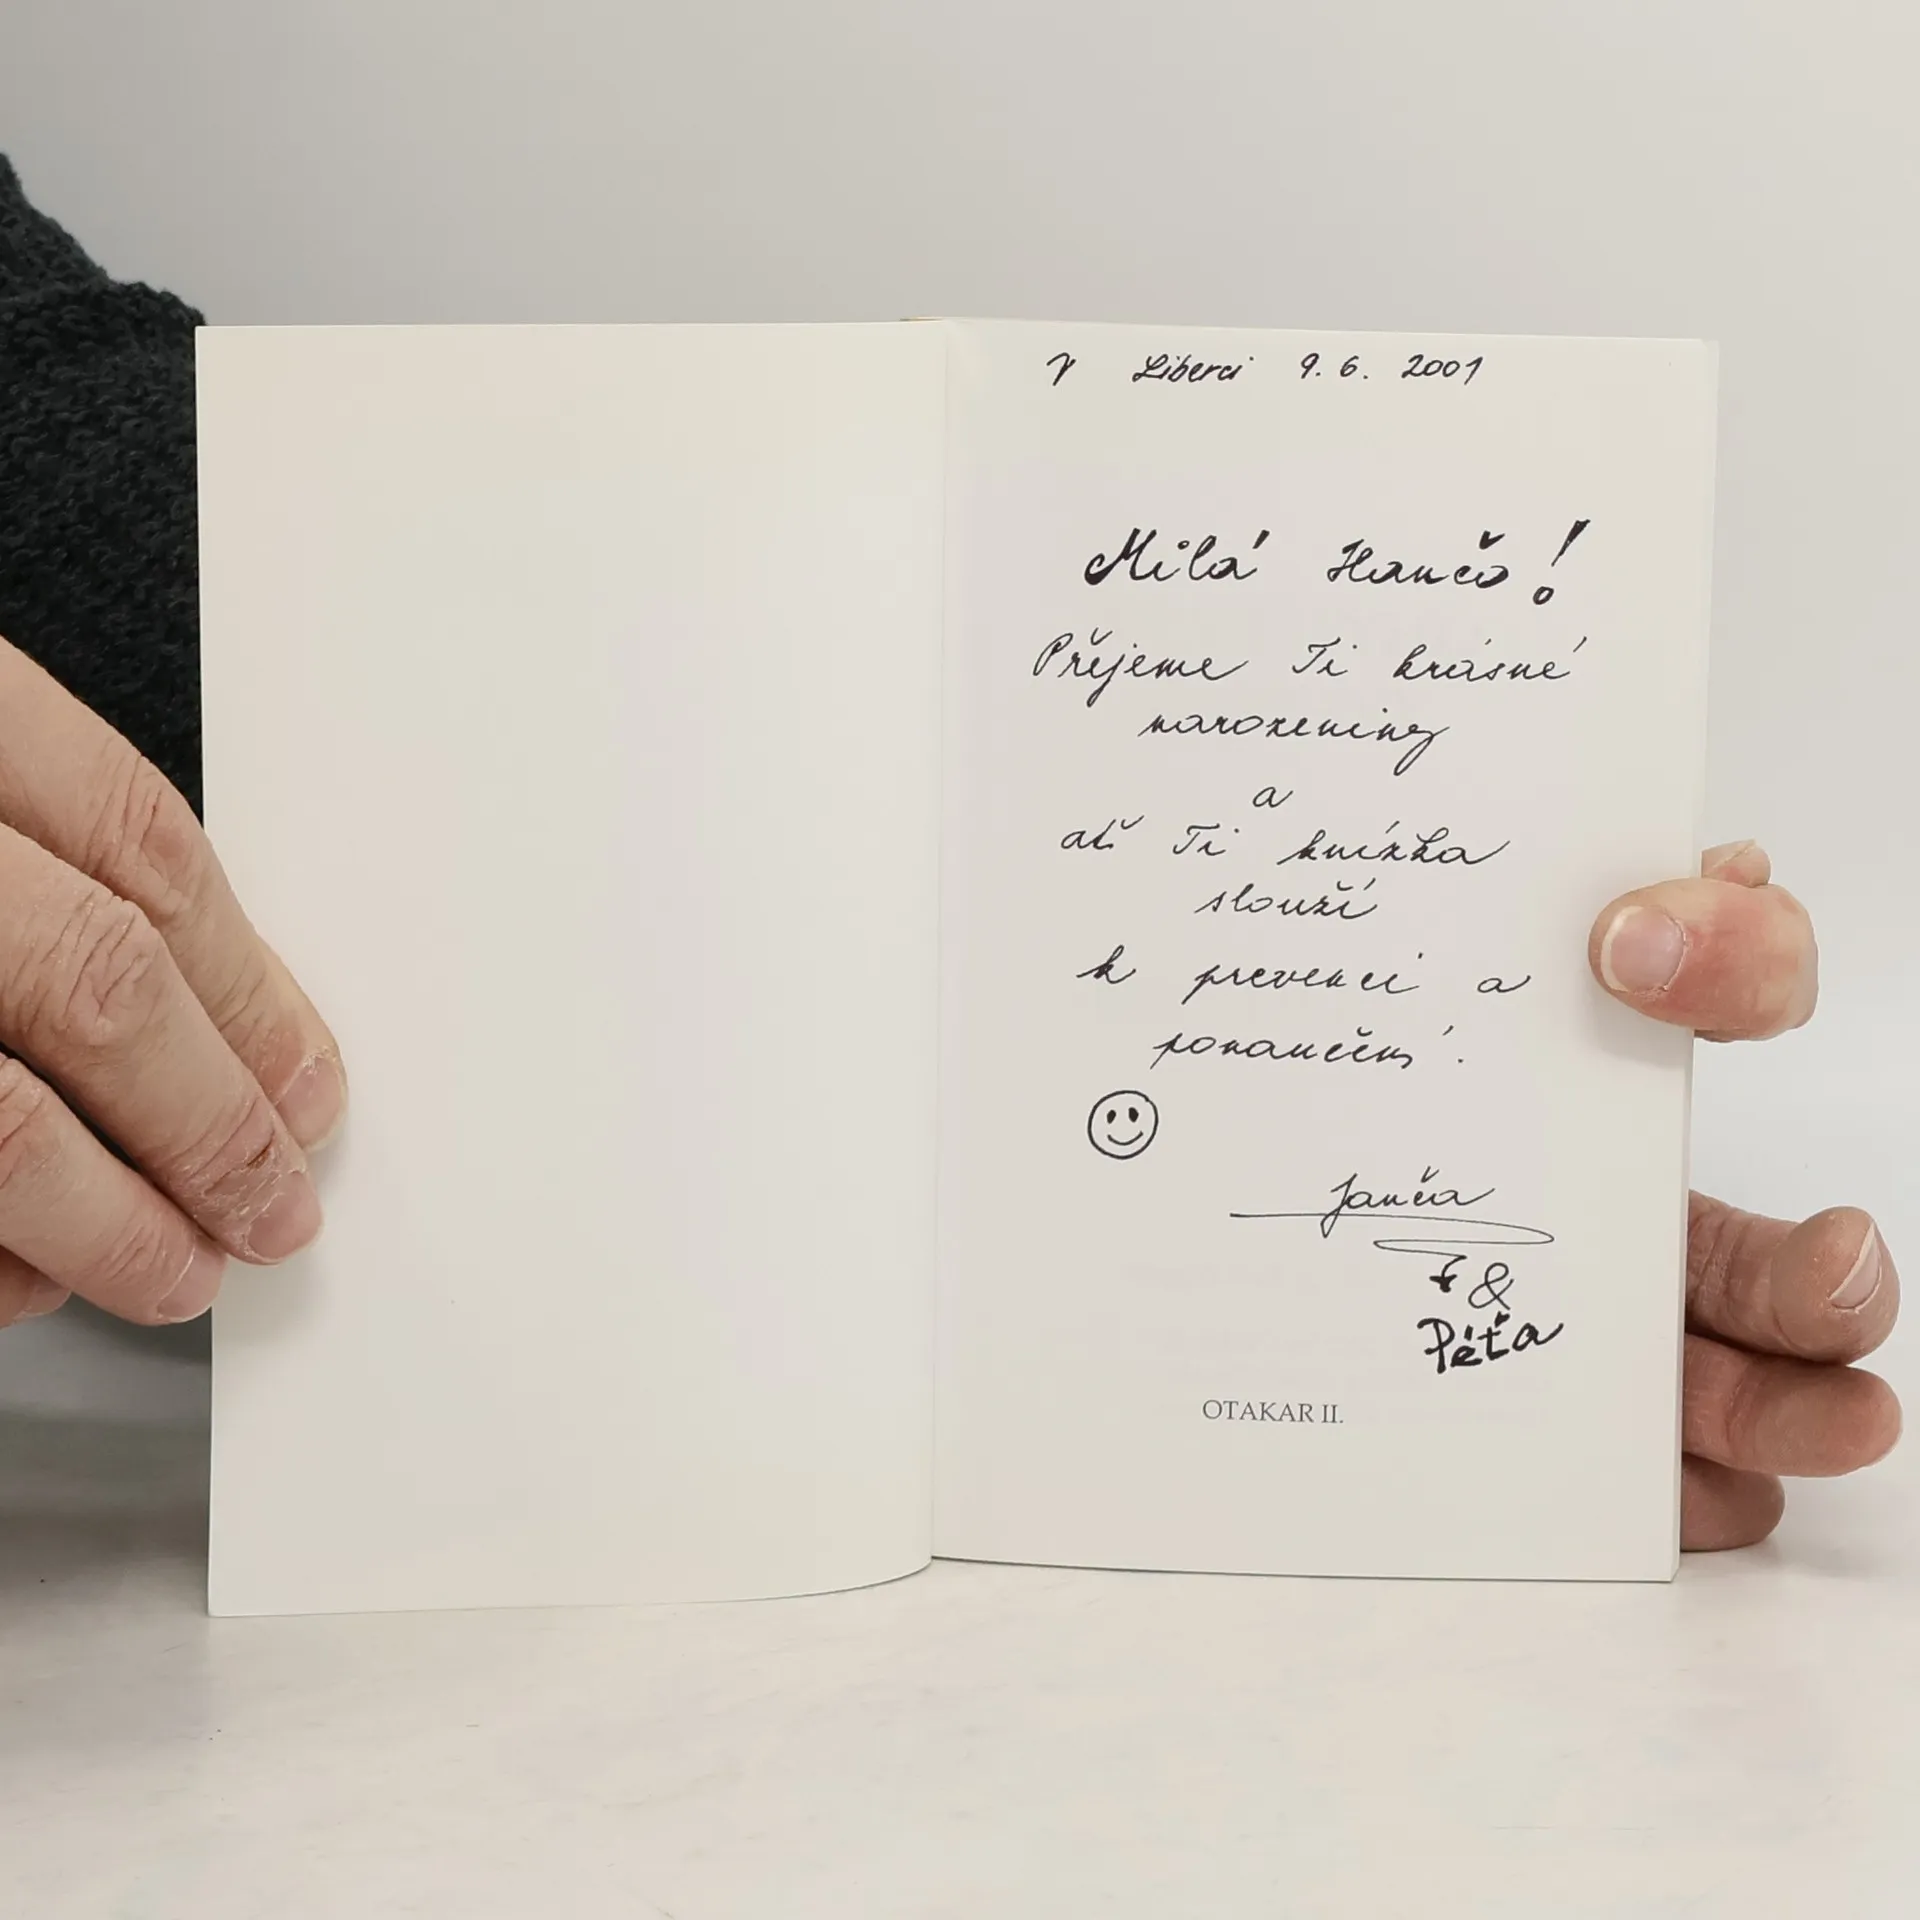 V Liberci 9. 6. 2001
Milá Hančo!
Přejeme Ti krásné
narozeniny
a
ať Ti knížka
slouží
k prevenci a
ponaučení.
Janča
&
Péťa
OTAKAR II.